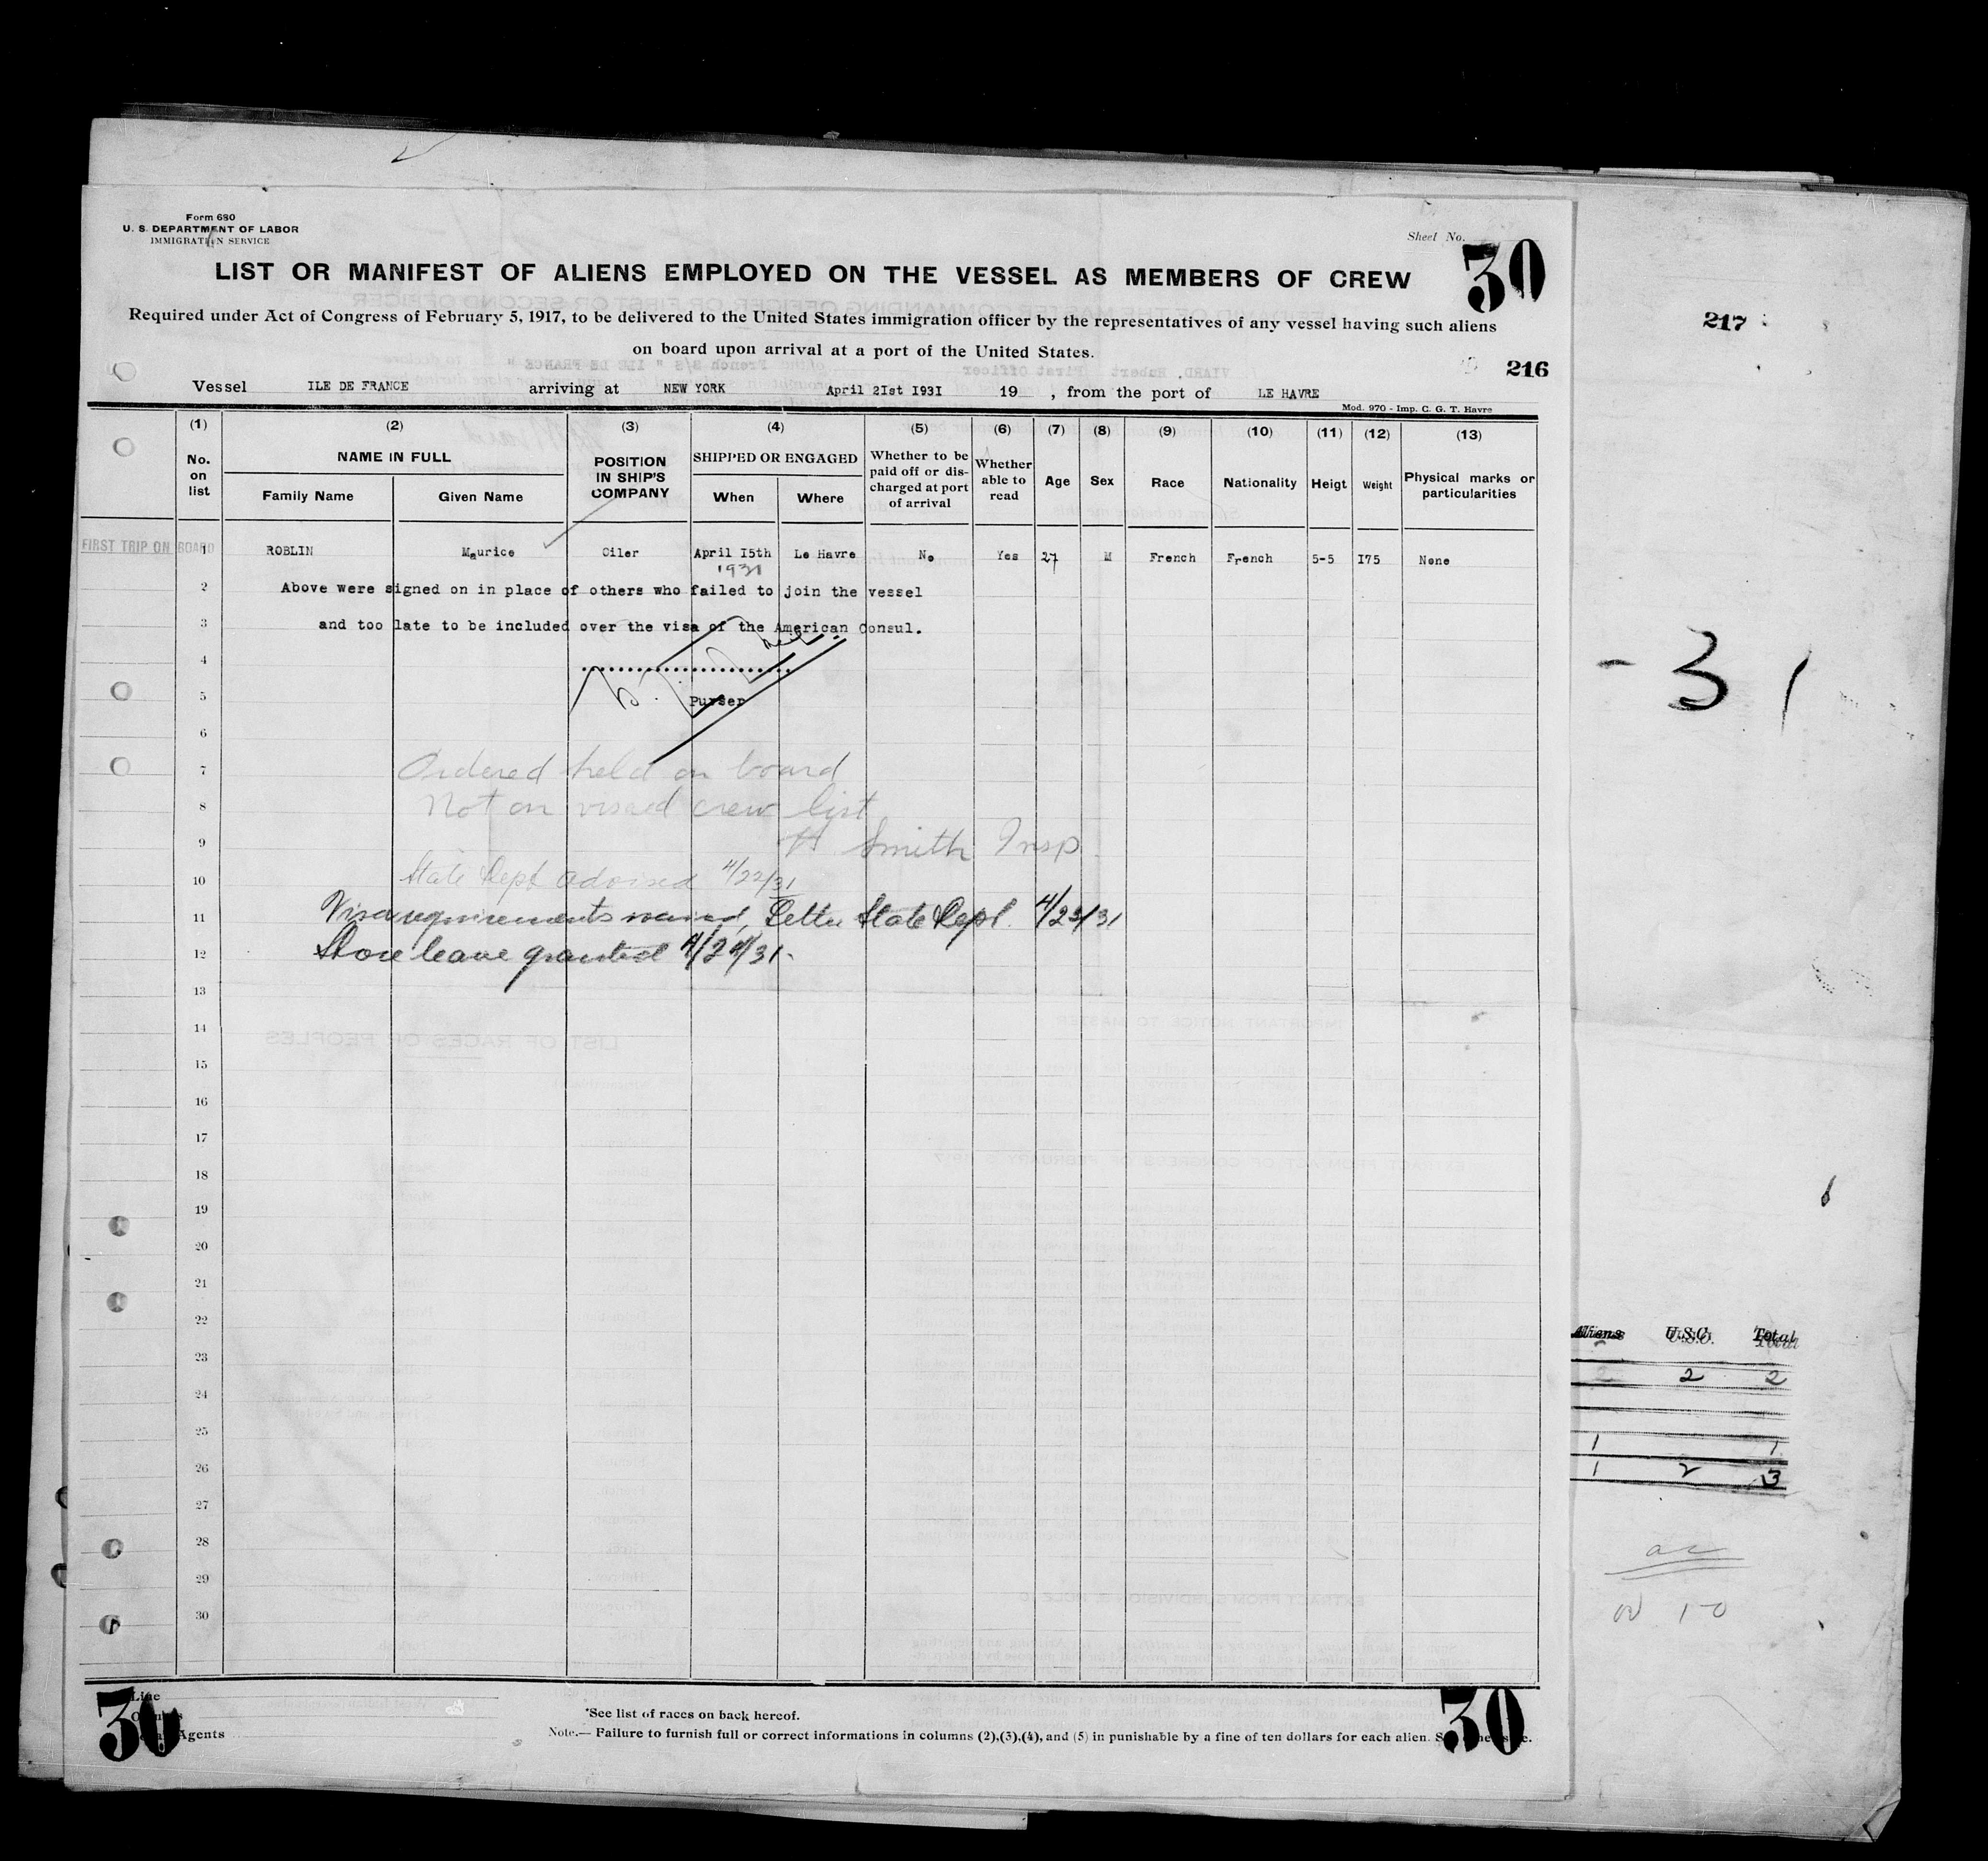 Form 680
U. S. DEPARTMENT OF LABOR
IMMIGRATION SERVICE
Sheet No.
30
LIST OR MANIFEST OF ALIENS EMPLOYED ON THE VESSEL AS MEMBERS OF CREW
Required under Act of Congress of February 5, 1917, to be delivered to the United States immigration officer by the representatives of any vessel having such aliens
on board upon arrival at a port of the United States.
217
216
Vessel ILE DE FRANCE arriving at NEW YORK April 2Ist I93I 19 , from the port of LE HAVRE
Mod. 970 - Imp. C. G. T. Havre
(1) (2) (3) (4) (5) (6) (7) (8) (9) (10) (11) (12) (13)
No. on list
NAME IN FULL
Family Name
Given Name
POSITION IN SHIP'S COMPANY
SHIPPED OR ENGAGED
When
Where
Whether to be paid off or dis-charged at port of arrival
Whether able to read
Age
Sex
Race
Nationality
Heigt
Weight
Physical marks or particularities
FIRST TRIP ON BOARD
1 ROBLIN Maurice Oiler April I5th Le Havre No Yes 27 M French French 5-5 I75 None
1931
2 Above were signed on in place of others who failed to join the vessel
3 and too late to be included over the visa of the American Consul.
4
5 Purser
6
7 Ordered held on board
8 Not on visaed crew list
9 H Smith Insp.
10 State Dept advised 4/22/31
11 Visa requirements waived, Letter State Dept. 4/23/31
12 Shore leave granted 4/24/31-
13
14
15
16
17
18
19
20
21
22
23
24
25
26
27
28
29
30
- 31
Aliens U.S.C. Total
2 2
1 1
1 2 3
30
Line
Agents
*See list of races on back hereof.
Note.— Failure to furnish full or correct informations in columns (2),(3),(4), and (5) in punishable by a fine of ten dollars for each alien.
30